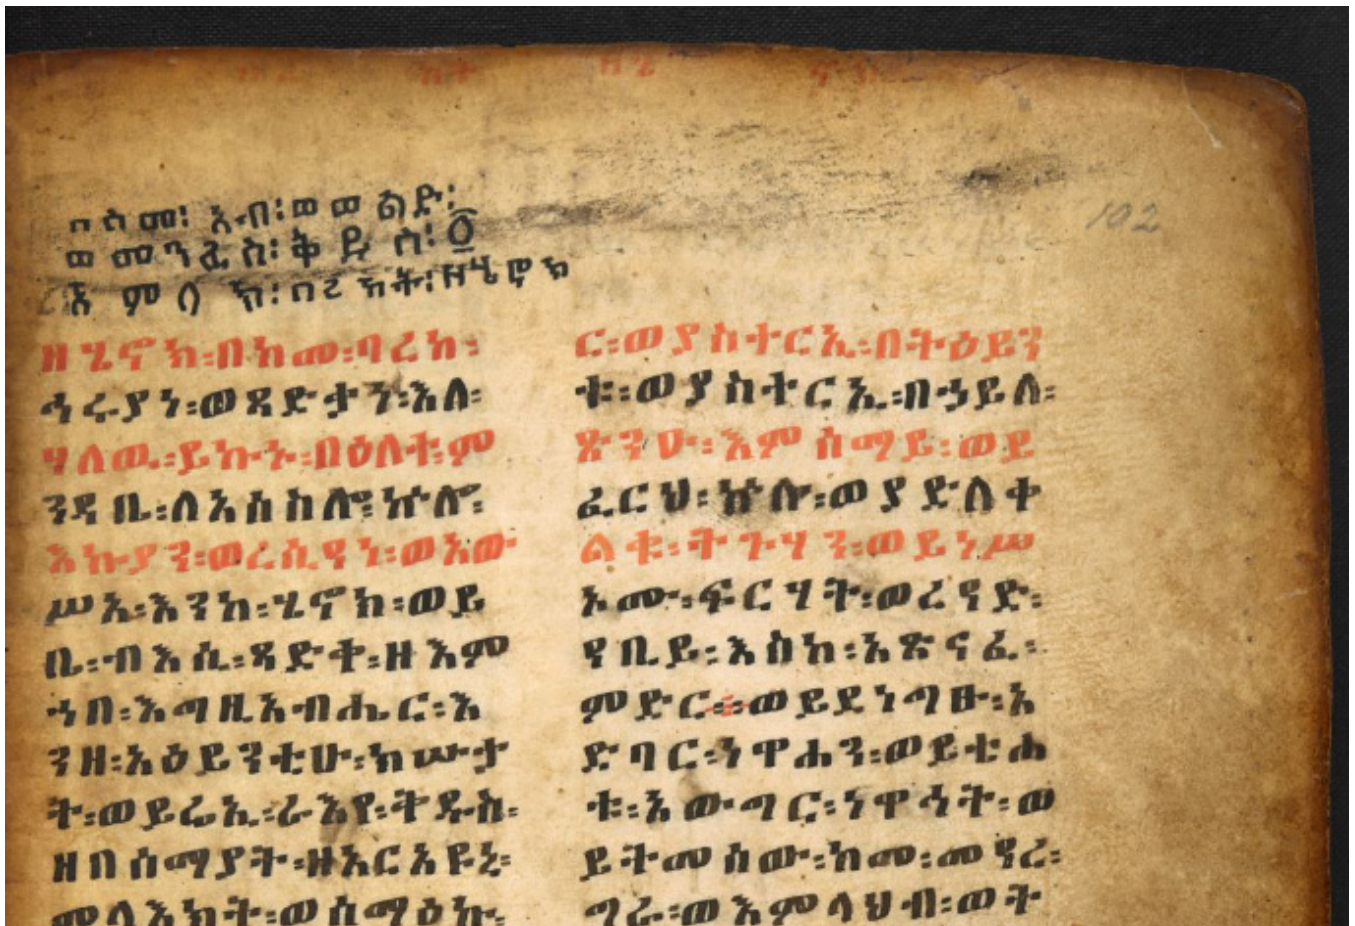 በስመ፡ አብ፡ወወልድ፡
ወመንፈስ፡ቅዱስ፡፩
አምላክ፡በረከት፡ዘሄኖክ
ዘሄኖክ፡በከመ፡ባረከ፡
ኅሩያነ፡ወጻድቃን፡እለ፡
ሃለዉ፡ይኩኑ፡በዕለተ፡ም
ንዳቤ፡ለአሰስሎ፡ኵሎ፡
እኩያን፡ወረሲዓነ፡ወአው
ሥአ፡እንከ፡ሄኖክ፡ወይ
ቤ፡ብእሲ፡ጻድቅ፡ዘእም
ኀበ፡እግዚአብሔር፡እ
ንዘ፡አዕይንቲሁ፡ክሡታ
ት፡ወይሬኢ፡ራእየ፡ቅዱስ፡
ዘበሰማያት፡ዘአርአዩኒ፡
መላእክት፡ወሰማዕኩ፡
ር፡ወያስተርኢ፡በትዕይን
ቱ፡ወያስተርኢ፡በኃይለ፡
ጽንዑ፡እምሰማይ፡ወይ
ፈርህ፡ኵሉ፡ወያድለቀ
ልቁ፡ትጉሃን፡ወይነሥ
ኦሙ፡ፍርሃት፡ወረዓድ፡
ዓቢይ፡እስከ፡አጽናፈ፡
ምድር፡፡ወይደነግፁ፡አ
ድባር፡ነዋሐን፡ወይቴሐ
ቱ፡አውግር፡ነዋኅት፡ወ
ይትመሰው፡ከመ፡መዓረ፡
ግራ፡ወእምላህብ፡ወት
102